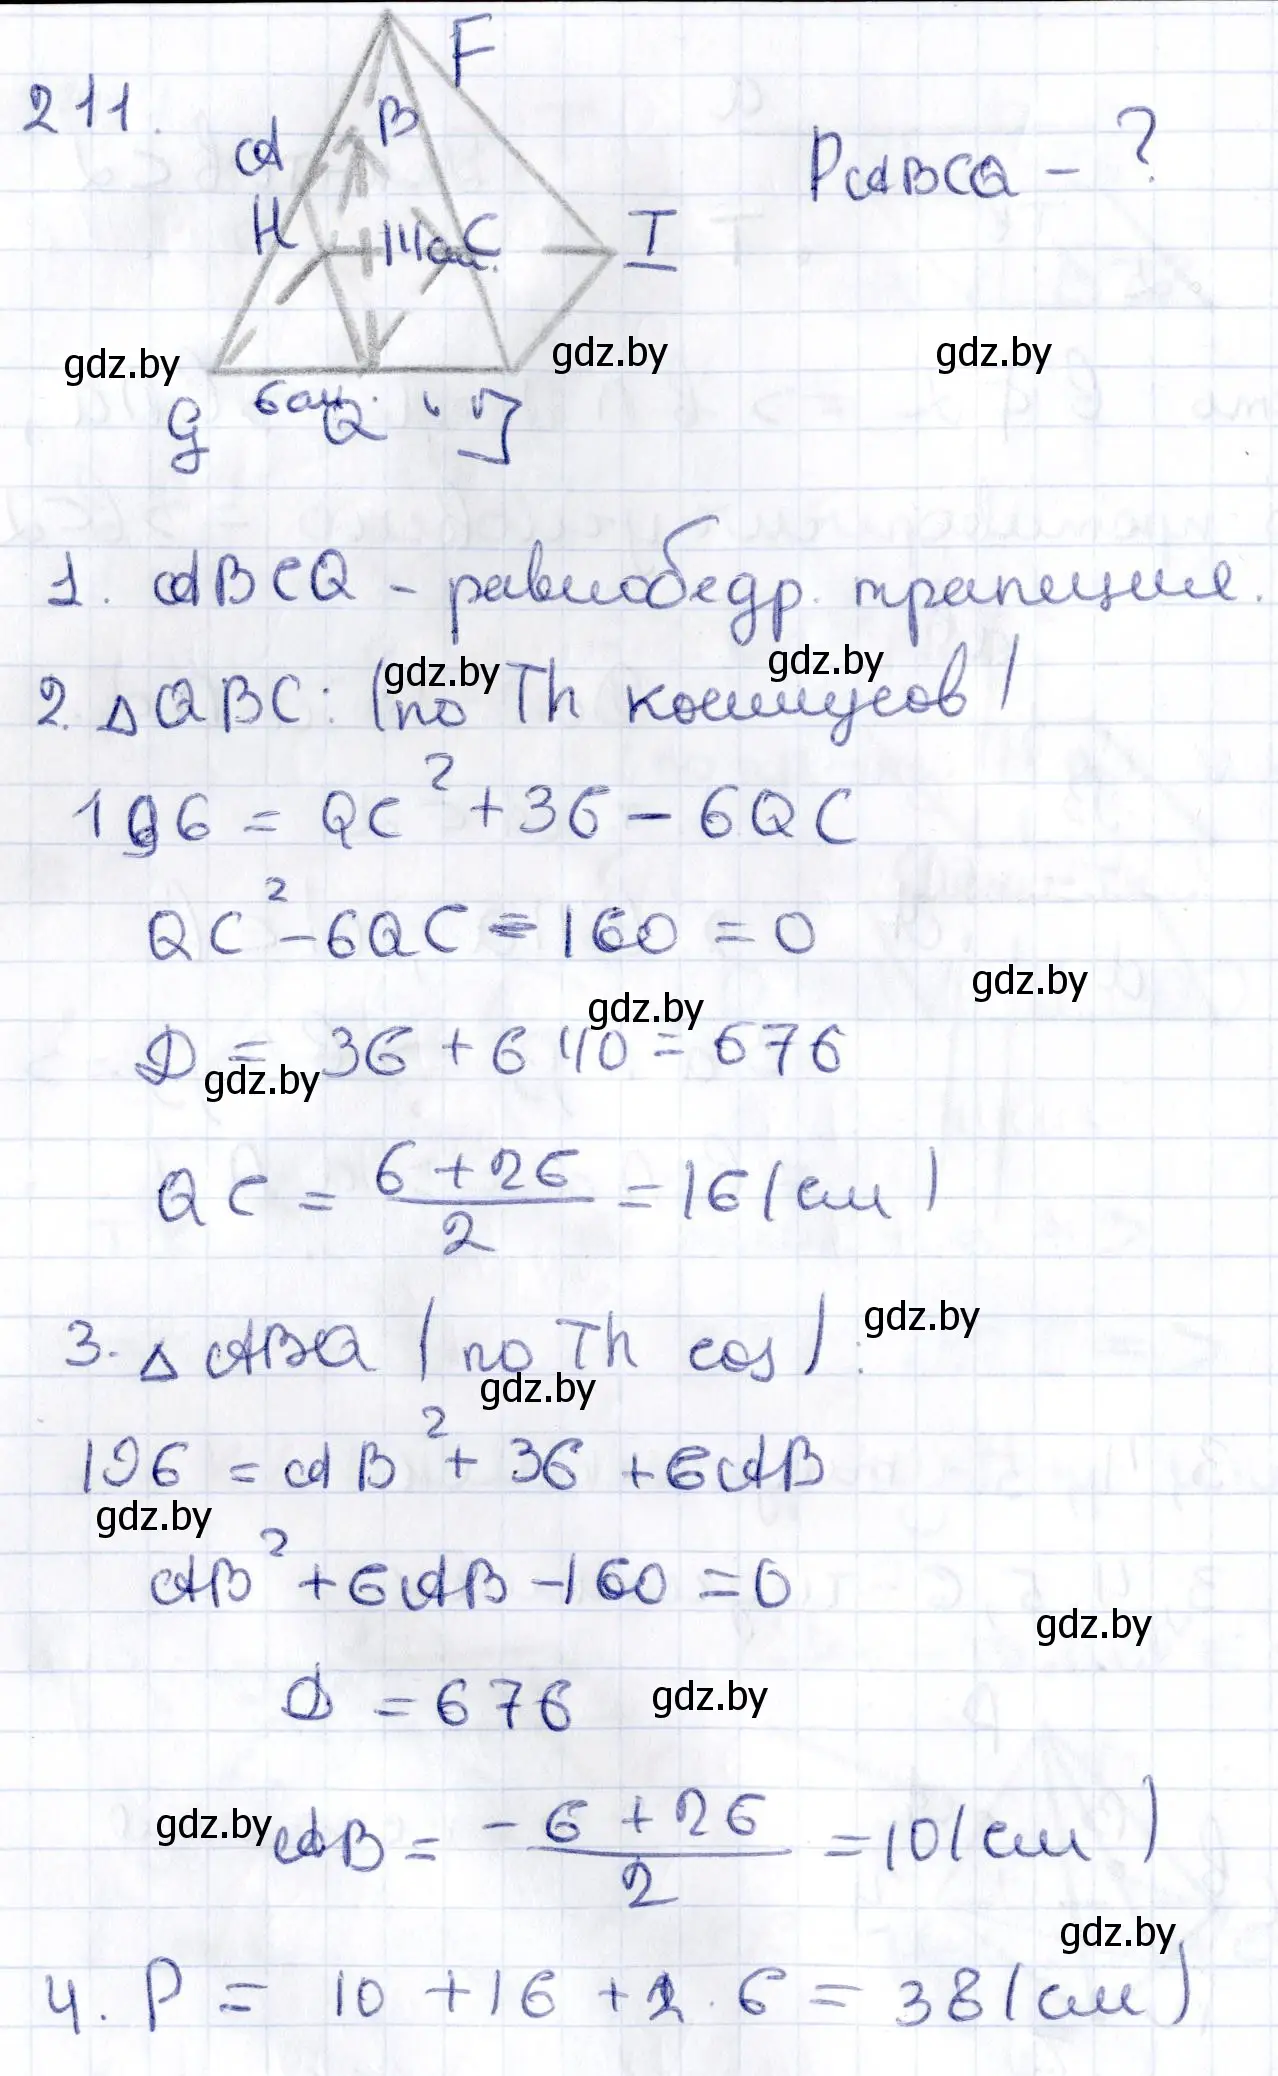 211.
F
A
B
H
14см.
C
I
6см.
G
Q
J
P ABCQ - ?
gdz.by gdz.by gdz.by
1. ABCQ - равнобедр. трапеция.
gdz.by gdz.by
2. △QBC: (по Th косинусов)
196 = QC² + 36 - 6QC
QC² - 6QC - 160 = 0
gdz.by gdz.by
D = 36 + 640 = 676
gdz.by
QC = (6 + 26)/2 = 16 (см)
gdz.by
3. △ABQ (по Th cos):
gdz.by
196 = AB² + 36 + 6AB
gdz.by
AB² + 6AB - 160 = 0
gdz.by
D = 676
gdz.by
gdz.by
AB = (-6 + 26)/2 = 10 (см)
gdz.by
4. P = 10 + 16 + 2 · 6 = 38 (см)